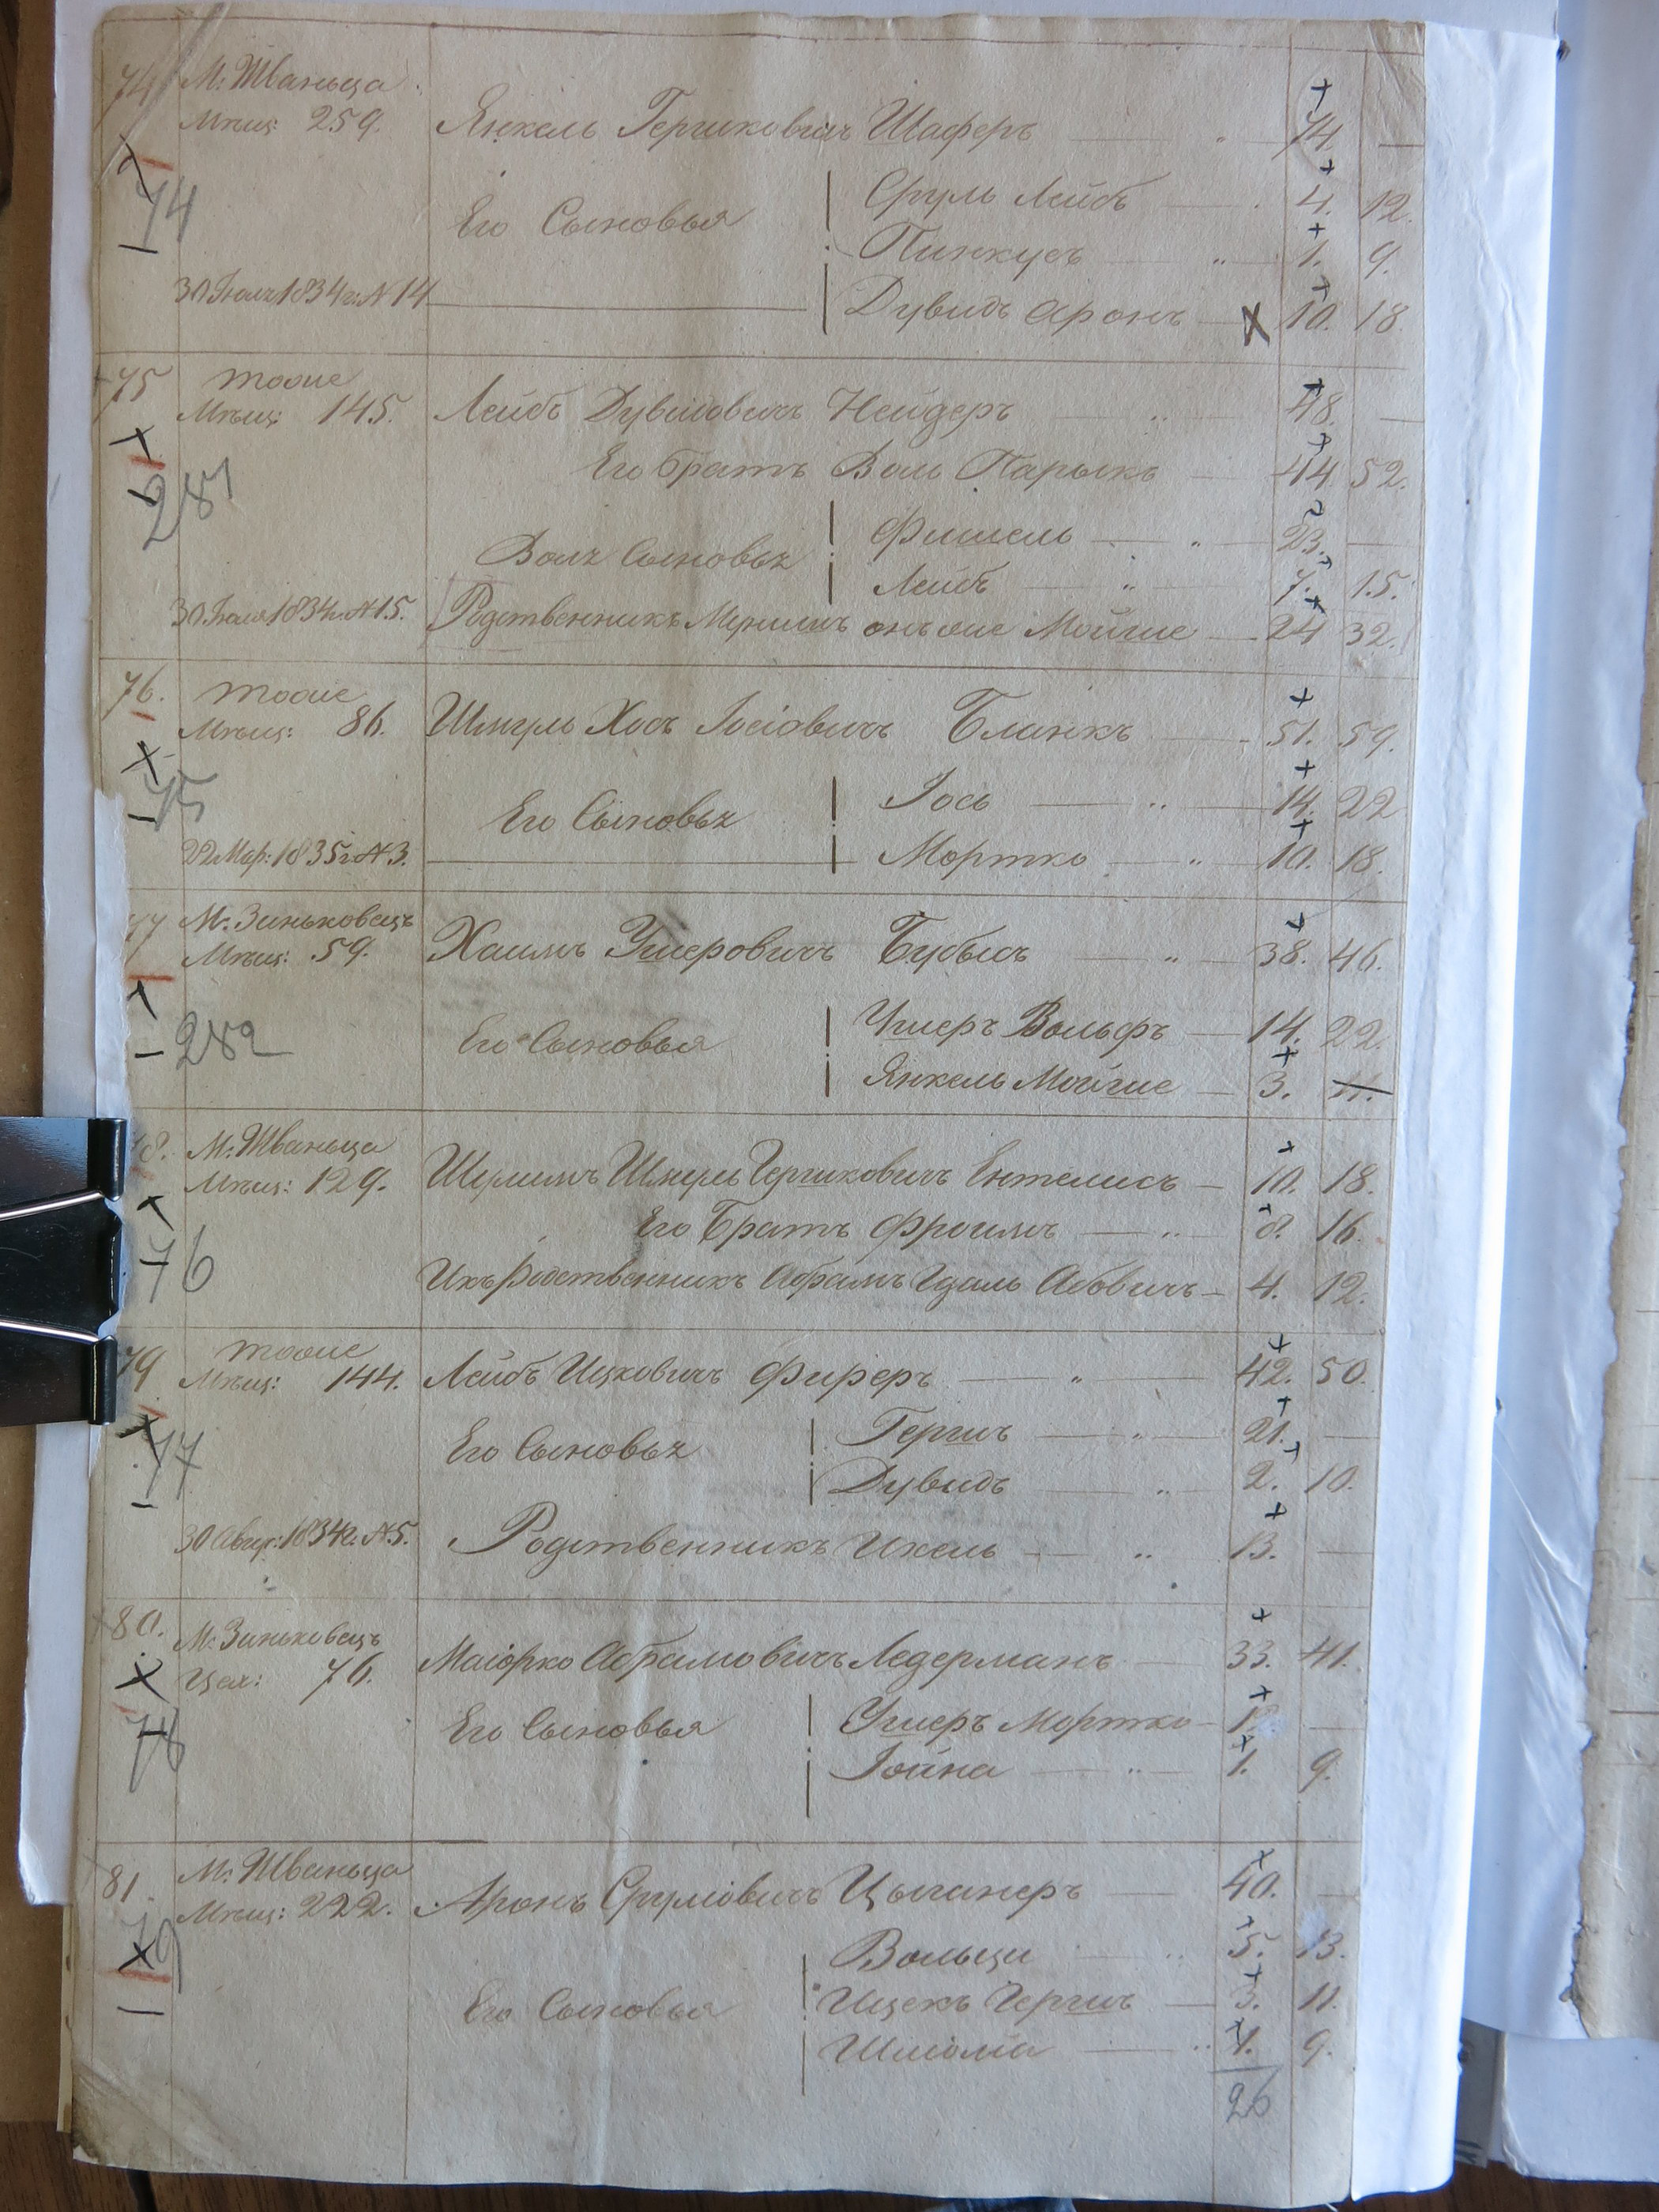 74 М. Жванца
Мѣщ: 259. Янкель Гершковичъ Шаферъ 74. —
74
Его Сыновья Сруль Лейбъ 4. 12.
Пинкусъ 1. 9.
30 Іюля 1834 г. № 14 Дувидъ Аронъ 10. 18.
75 тоже
Мѣщ: 145. Лейбъ Дувидовичъ Нейдеръ 48. —
Его Братъ Воль 44. 52.
281
Воля Сыновья Фишель 23. —
Лейбъ 7. 15.
30 Іюля 1834 г. № 15. Родственникъ онъ же Мойше 24 32.
76. тоже
Мѣщ: 86. Шмуль Хось Іосіовичъ Блинкъ 51. 59.
75
Его Сыновья Іось 14. 22
22 Мар: 1835 г № 3. Мортко 10. 18.
77 М. Зиньковецъ
Мѣщ: 59. Хаимъ Ушеровичъ Бубысъ 38. 46.
282
Его Сыновья Ушеръ Вольфъ 14. 22.
Янкель Мойше 3. 11.
78. М. Жванца
Мѣщ: 129. Шулимъ Шмуль Гершковичъ Ентелисъ 10. 18.
76
Его Братъ Фроимъ 8. 16.
Ихъ родственникъ Абрамъ Гдаль Абовичъ 4. 12.
79 тоже
Мѣщ: 144. Лейбъ Ицковичъ Фиреръ 42. 50.
77
Его Сыновья Гершъ 21. —
Дувидъ 2. 10.
30 Авгус: 1834 г. № 5. Родственникъ Ихель 13. —
80. М. Зиньковецъ
Цех: 76. Маіорко Абрамовичъ Ледерманъ 33. 41.
78
Его Сыновья Ушеръ Мортко —
Іойна 1. 9.
81 М. Жванца
Мѣщ: 222. Аронъ Сруліовичъ Цыганеръ 40. —
79
Вольци 5. 13.
Его Сыновья Ицекъ Гершъ 3. 11.
Шліома 1. 9.
26